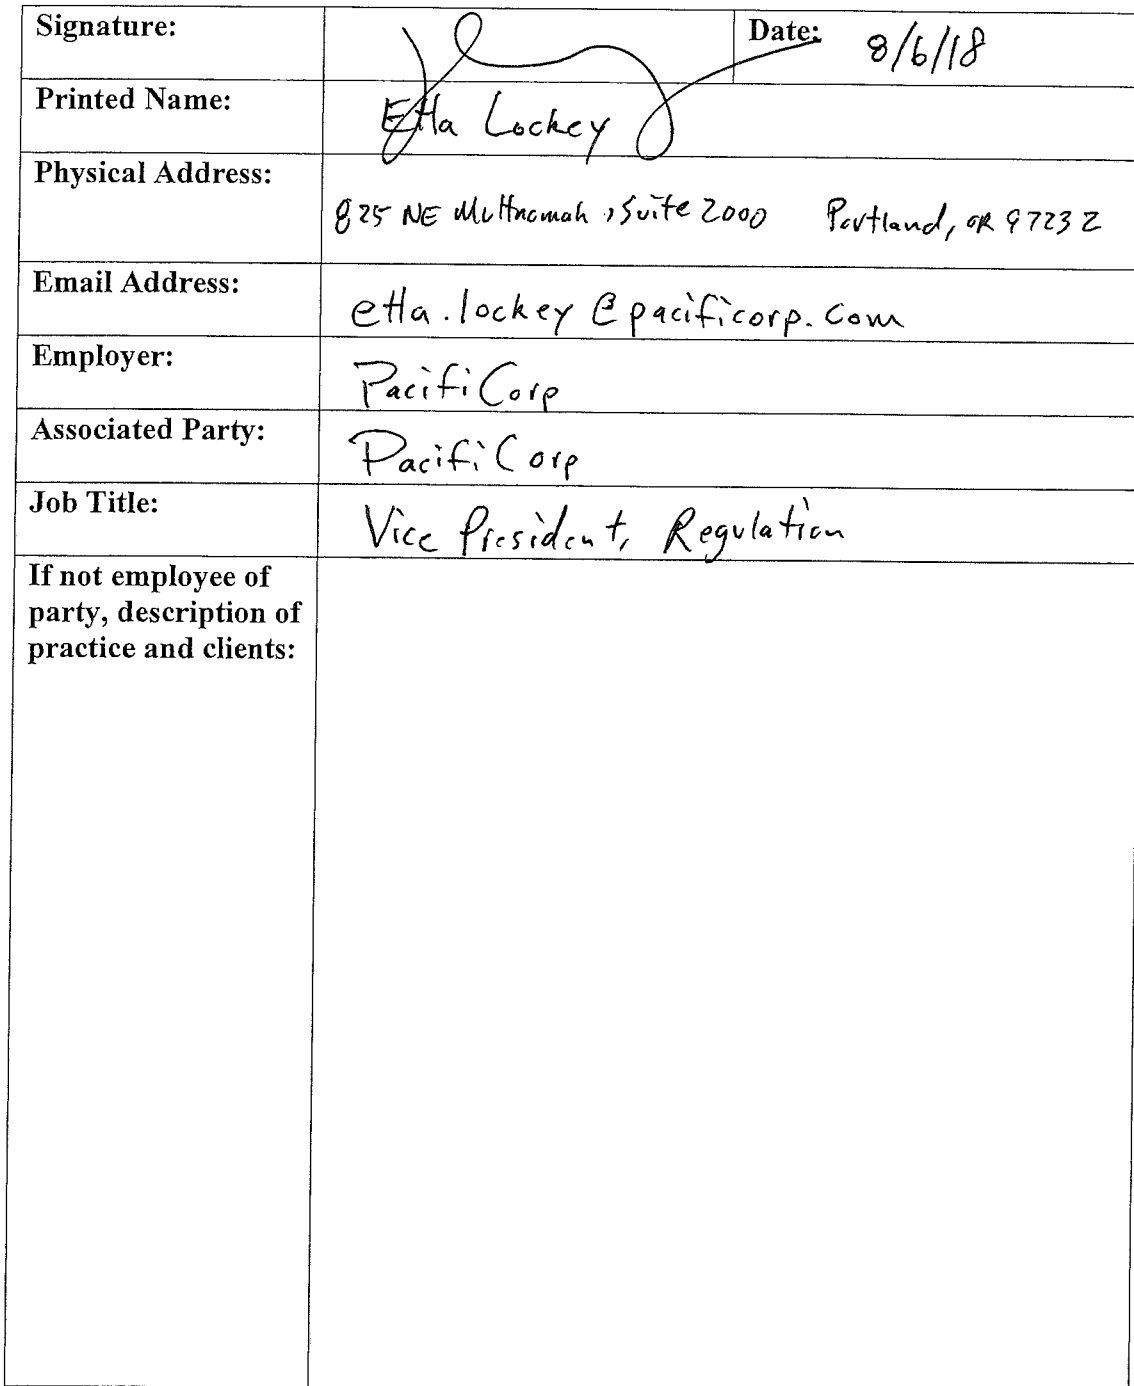 Signature:
Date: 8/6/18
Printed Name: Etta Lockey
Physical Address:
825 NE Multnomah, Suite 2000 Portland, OR 97232
Email Address: etta.lockey@pacificorp.com
Employer: PacifiCorp
Associated Party: PacifiCorp
Job Title: Vice President, Regulation
If not employee of
party, description of
practice and clients: